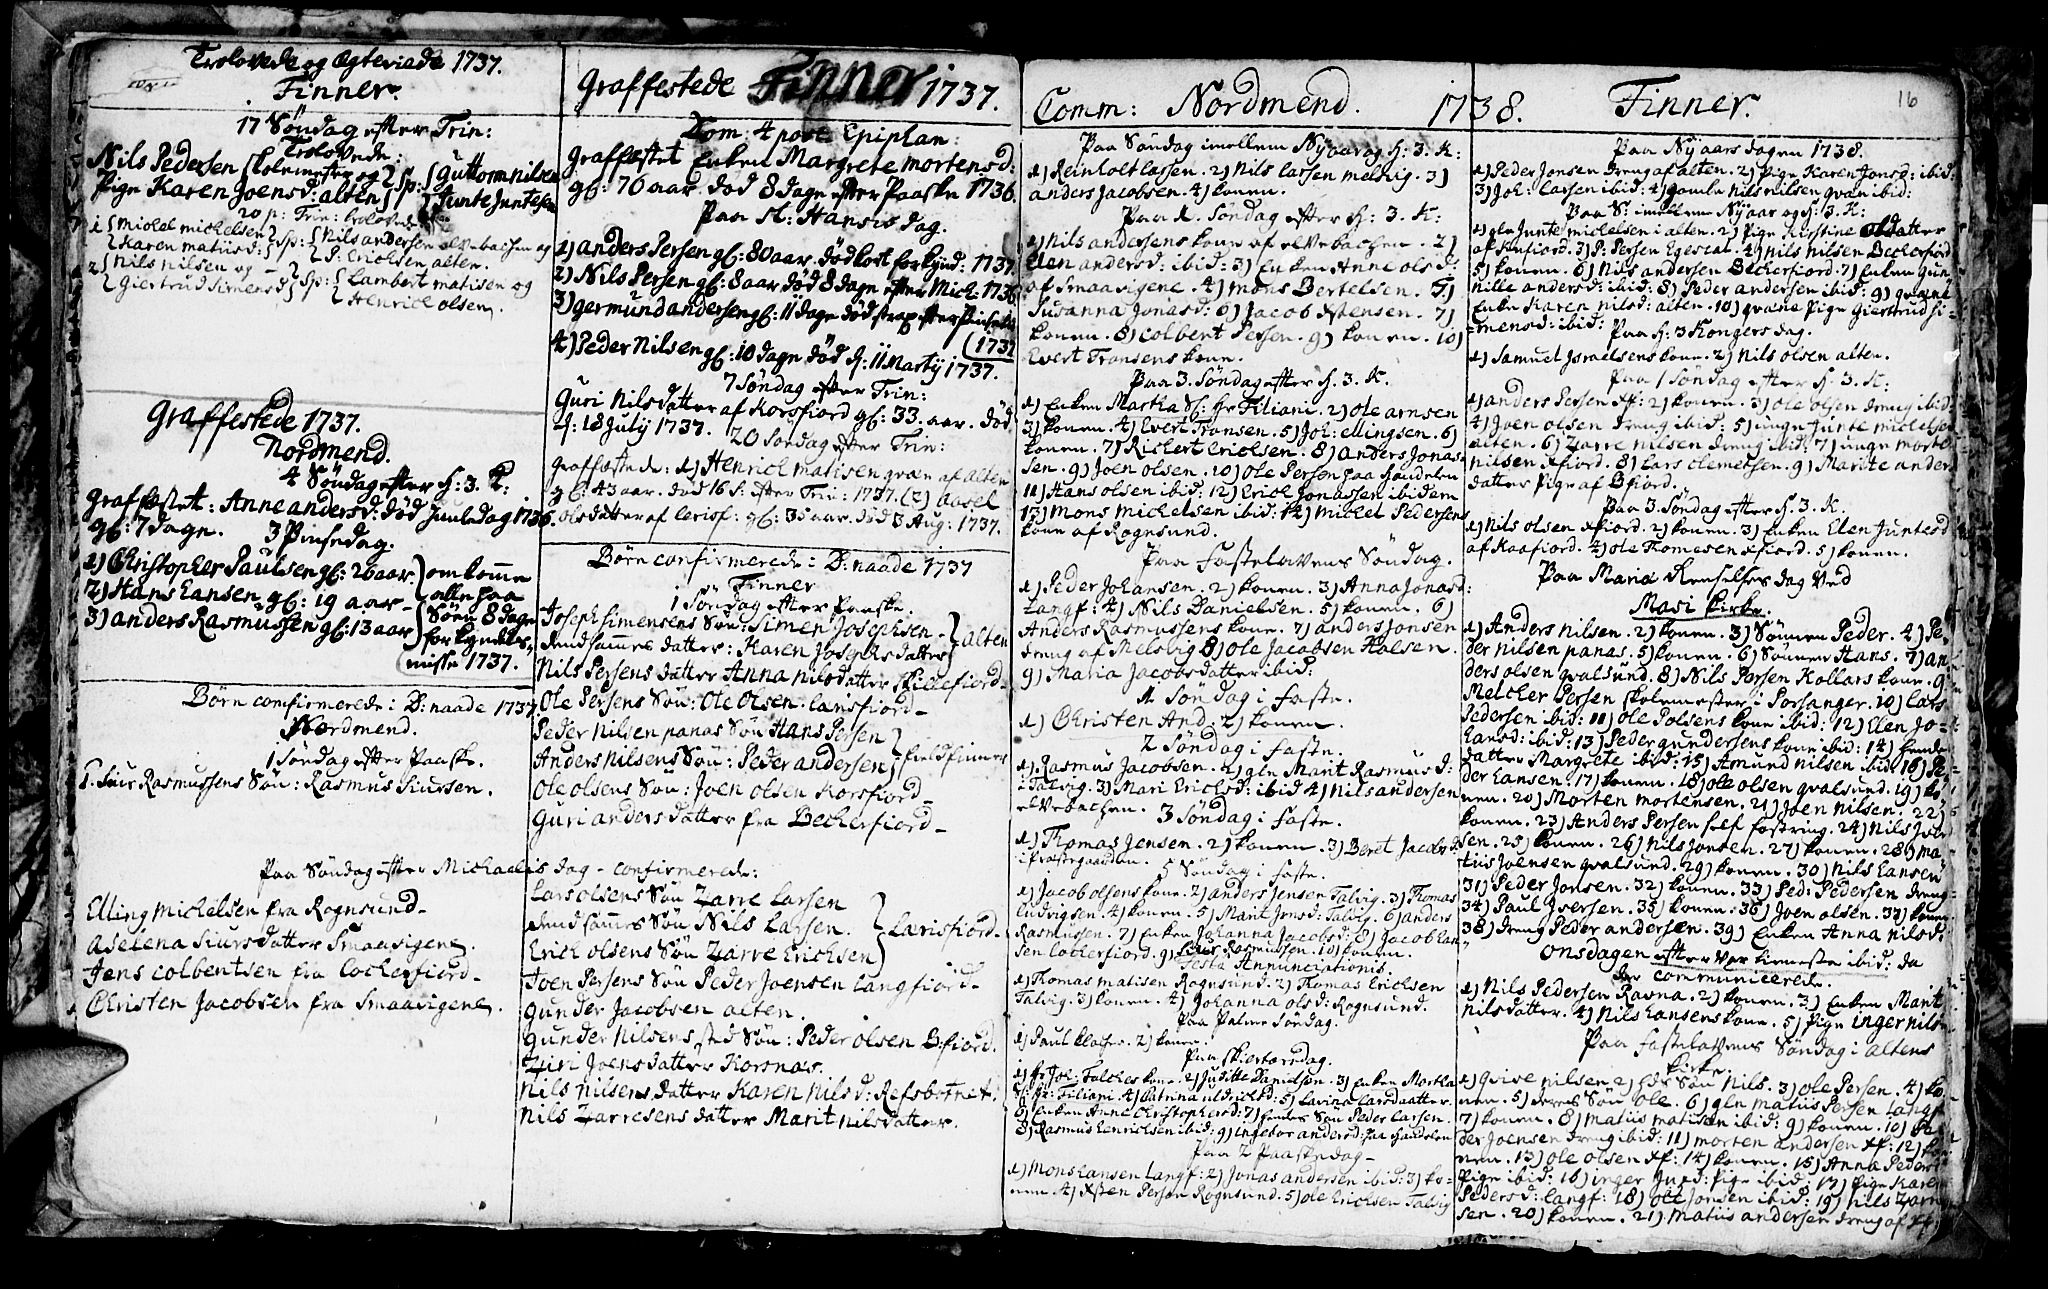 Trolovede og Ægteviede 1737.
Finner.
17 Söndag efter Trin:
Trolovede:
Nils Pedersen Skolemester og Sp: Guttorm Nilsen
Pige Karen Joensd: alten Junte Juntesen
20 p: Trin: trolovede
1 Michel Michelsen Sp: Nils andersen elvebachen og
Karen Matiisd: P: Erichsen alten.
2 Nils Nilsen og Sp: Lambert Matisen og
Giertrud Simensd Henrich olsen
Graffestede 1737.
Nordmend.
4 Söndag efter H: 3. K:
Graffæstet. Anne andersd: död Juuledag 1736.
gl: 7 dage. 3 Pinsedag.
1) Christopher Paulsen gl: 26 aar. omkomne
2) Hans Hansen gl: 19 aar alle paa
3) anders Rasmussen gl: 13 aar Söen 8 dage
for kyndel-
misse 1737.
Börn confirmerede i D: naade 1737
Nordmend.
1 Söndag efter Paaske.
S. Siur Rasmussens Sön: Rasmus Siursen.
Paa Söndag efter Michaelis dag confirmerede:
Elling Michelsen fra Rognsund
Aselena Siursdatter Smaavigene.
Jens Colbentsen fra Cockelfiord
Christen Jacobsen fra Smaavigene.
Graffestede Finner 1737.
Dom: 4 post Epiphan:
Graffæstet Enken Margrete Mortensd:
gl: 76 aar. död 8 dage efter Paaske 1736.
Paa St: Hansis dag.
1) anders Persen gl: 80 aar. död kort for kynd: 1737.
2) Nils Persen gl: 8 aar död 8 dage efter Mich: 1736
3) germund andersen gl: 11 dage död strax efter Pinse
1737
4) Peder Nilsen gl: 10 dage död d: 11 Martij 1737.
7 Söndag efter Trin:
Guri Nilsdatter af Korsfiord gl: 33. aar. död
d: 18 July 1737. 20 Söndag efter Trin:
Graffæstede: 1) Henrich Matisen qvæn af Alten
gl: 43 aar. död 16 S: efter Trin: 1737. (2) Aasel
olsdatter af Lerisf: gl: 35 aar. död 3 Aug: 1737.
Börn confirmerede i D: naade 1737
Finner
1 Söndag efter Paaske.
Joseph Simensens Sön: Simen Josephsen
dend sammes datter: Karen Josephsdatter alten
Nils Persens datter Anna Nilsdatter Skillefiord
Ole Persens Sön: Ole Olsen Lansfiord
Peder Nilsen panas Sön Hans Persen
Anders Nilsens Sön: Peder andersen fieldfinner
Ole olsens Sön Joen olsen Korsfiord
Guri andersdatter fra Beckerfiord
Lars olsens Sön Zarre Larsen
dend sammes Sön Nils Larsen. Lærisfiord
Erich olsens Sön Zarre Erichsen
Joen Persens Sön Peder Joensen Langfiord
Gunder Jacobsen alten.
Gunder Nilsens Sön: Peder olsen B:fiord.
Ziri Joensdatter Korsnæs.
Nils Nilsens datter Karen Nilsd: Refsbotnet
Nils Zarresens datter Marit Nilsdatter.
Comm: Nordmend. 1738.
Paa Söndag imellem Nyaar og H: 3. K:
1) Reinholt Lassen. 2) Nils Larsen Melsvig. 3)
anders Jacobsen. 4) konen.
Paa 1. Söndag efter H: 3. K:
1) Nils andersens kone af elvebachen. 2)
Elen andersd: ibid: 3) Enken Anne olsd:
af Smaavigene. 4) Mons Bertelsen. 5)
Susanna Jonasd: 6) Jacob Østensen. 7)
konen. 8) Colbent Persen. 9) konen. 10)
Evert Fransens kone.
Paa 3. Söndag efter H. 3. K.
1) Enken Martha Sl: Hr Filiani. 2) Ole arnsen
3) konen. 4) Evert Fransen. 5) Joh: ellingsen. 6)
konen. 7) Richert Erichsen. 8) anders Jonas-
sen. 9) Joen olsen. 10) Ole Persen paa handelen
11) Hans olsen ibid: 12) Erich Jonassen ibidem
13) Mons Michelsen ibid: 14) Michel Pedersens
kone af Rognsund.
Paa Fastelavens Söndag.
1) Peder Johansen. 2) konen. 3) Anna Jonasd:
Langf: 4) Nils Danielsen. 5) konen. 6)
Anders Rasmussens kone. 7) anders Jonsen
dreng af Melsvig 8) Ole Jacobsen Halsen.
9) Maria Jacobsdatter ibid:
1 Söndag i faste.
1) Christen And: 2) konen.
2 Söndag i faste.
1) Rasmus Jacobsen. 2) gln Marit Rasmusd:
i Talvig. 3) Mari Erichsd: ibid 4) Nils andersen
elvebachen. 3 Söndag i faste.
1) Thomas Jensen. 2) konen. 3) Beret Jacobsd:
i Præstegaarden. 5 Söndag i faste.
1) Jacob olsens kone. 2) anders Jensen Talvig. 3) Thomas
Ludvigsen. 4) konen. 5) Marit Jonsd: Talvig. 6) anders
Rasmussen. 7) Enken Johanna Jacobsd: 8) Jacob Han-
sen Cockelfiord. 9) Siur Rasmussen. 10) konen.
Festo Annunciationis.
1) Thomas Matisen Rognsund. 2) Thomas Erichsen
Talvig. 3) konen. 4) Johanna olsd: Rognsund.
Paa Palme Söndag.
1) Paul Klafs. 2) konen.
Paa Skiertorsdag.
1) Hr Joh: Falches kone. 2) Juditte Danielsen. 3) Enken Martha
Sl: Hr: Filiani. 4) Catrina uldrichsd: 5) Lavina Larsdaatter.
6) Enken Anne Christophersd: 7) Hendes Sön Peder Larsen.
8) Rasmus Henrichsen ibid: 9) ingebor andersd: paa handelen
Paa 2 Paaskedag
1) Mons Hansen Langf: 2) Jonas andersen ibid: 3) ko-
nen. 4) Østen Persen Rognsund. 5) Ole Erichsen Talvig
Finner. 16
Paa Nyaars dagen 1738.
1) Peder Jonsen dreng af alten. 2) Pige Karen Jonsd: ibid.
3) Joh: Larsen ibid: 4) gamle Nils Nilsen qvæn ibid:
Paa S: imellem Nyaar og H: 3. K:
1) gln Junte Michelsen i alten. 2) Pige Kirstine olsdatter
af Kaafiord. 3) P: Persen Egeskal. 4) Nils Nilsen Beckerfiord
5) konen. 6) Nils andersen Beckerfiord. 7) Enken Gun-
nille andersd: ibid: 8) Peder andersen ibid: 9) qvæne
Enke Karen Nilsd: alten. 10) qvæne Pige Giertrud Si-
mensd: ibid: Paa H: 3 Kongers dag.
1) Samuel Israelsens kone. 2) Nils olsen alten.
Paa 1 Söndag efter H: 3. K:
1) anders Persen Xf: 2) konen. 3) Ole olsen dreng ibid:
4) Joen olsen dreng ibid: 5) unge Junte Michelsen
alten. 6) Zarre Nilsen dreng ibid: 7) unge Morten
Nilsen Xfiord. 8) Lars Clemetsen. 9) Marite anders
datter Pige af Bfiord.
Paa 3. Söndag efter H. 3. K.
1) Nils olsen Xfiord. 2) konen. 3) Enken Elen Juntesd
af Kaafiord. 4) Ole Thomesen Xfiord. 5) konen.
Paa Mariæ Renselses dag ved
Masi Kirke.
1) Anders Nilsen. 2) konen. 3) Sönnen Peder. 4) Pe-
der Nilsen panas. 5) konen. 6) Sönnen Hans. 7) an-
ders olsen qvalsund. 8) Nils Persen Kollars kone. 9)
Melcher Persen Skolemester i Porsanger. 10) Lars
Pedersen ibid: 11) Ole Polsens kone ibid: 12) Elen Jo-
hansd: ibid: 13) Peder gundersens kone ibid: 14) hendes
datter Margrete ibid: 15) Amund Nilsen ibid: 16) Pe-
der Hansen. 17) konen. 18) Ole olsen qvalsund. 19) ko-
nen. 20) Morten Mortensen. 21) Joen Nilsen. 22)
konen. 23) Anders Persen self fostring. 24) Nils Iver-
sen. 25) konen. 26) Nils Jonsen. 27) konen. 28) Ma-
tiis Joensen qvalsund. 29) konen. 30) Nils Hansen
31) Peder Jonsen. 32) konen. 33) Ped: Pedersen dreng
34) Paul Iversen. 35) konen. 36) Joen olsen. 37) konen
38) dreng Peder andersen. 39) Enken Anna Nilsd:
Onsdagen efter var tieneste ibid: da
der communicerede.
1) Nils Pedersen Ravna. 2) konen. 3) Enken Marit
Nilsdatter. 4) Nils Hansens kone. 5) Pige inger Nils-
Paa Fastelavens Söndag i Altens
Kirke.
1) qvive Nilsen. 2) Sön Nils. 3) Ole Persen. 4) ko-
nen. 5) deres Sön Ole. 6) gln Matiis Persen Langf:
7) konen. 8) Matiis Matisen ibid: 9) konen. 10) Pe-
der Joensen dreng ibid: 11) Morten andersen Xf: 12) ko-
nen. 13) Ole olsen Xf: 14) konen. 15) Anna Pedersd
Pige ibid: 16) inger Jonsd: Pige ibid: 17) Pige Karen
Pedersd: Langf: 18) Ole Jonsen ibid: 19) Nils Zarre-
sen. 20) konen. 21) Matiis andersen dreng af Xf: